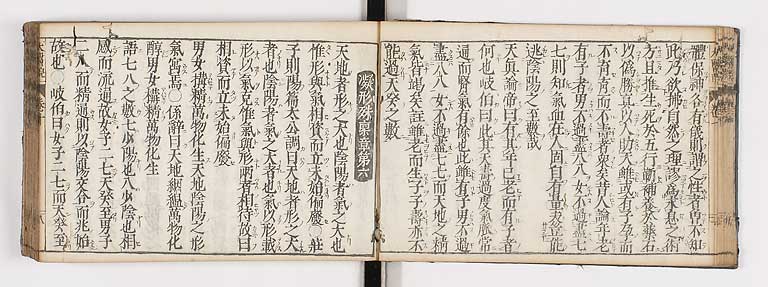 體保神各有儀則謂之性者曾不知
此乃欲拂自然之理謬爲求息之術
方且推生死於五行蘄補養於藥石
以僞勝眞以人助天雖或有子孕而
不育育而不壽者衆矣昔人論年老
有子者男不過盡八八女不過盡七
七則知氣血在人固自有量夫豈能
逃陰陽之至數哉
天眞論帝曰有其年已老而有子者
何也岐伯曰此其天壽過度氣脈常
通而腎氣有餘也此雖有子男不過
盡八八女不過盡七七而天地之精
氣皆竭矣註雖老而生子子壽亦不
能過天癸之數
凝形殊稟章第六
天地者形之大也陰陽者氣之大也
惟形與氣相資而立未始偏廢○莊
子則陽篇太公調曰天地者形之大
者也陰陽者氣之大者也氣以形載
形以氣充惟氣與形兩者相待故曰
相資而立未始偏廢
男女構精萬物化生天地陰陽之形
氣寓焉○係辭曰天地絪縕萬物化
醇男女構精萬物化生
語七八之數七少陽也八少陰也相
感而流通故女子二七天癸至男子
二八而精通則以陰陽交合而兆始
故也○岐伯曰女子二七而天癸至